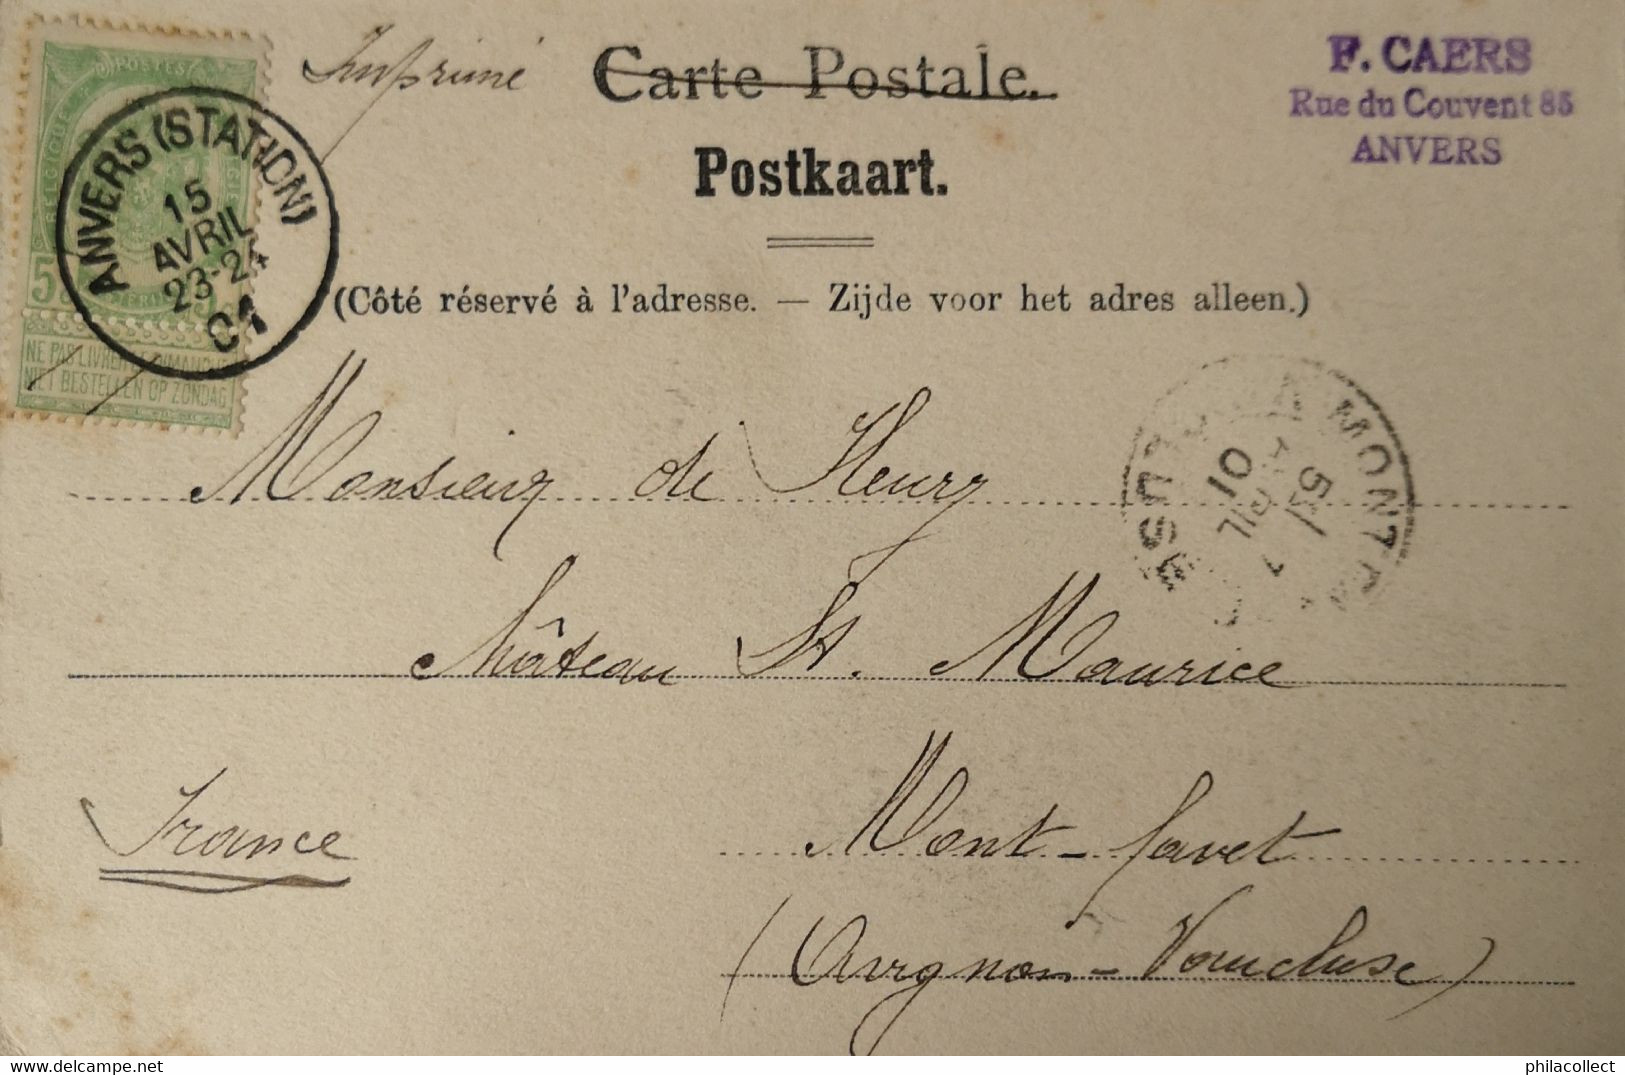 Imprimé
Carte Postale.
Postkaart.
F. CAERS
Rue du Couvent 85
ANVERS
POSTES
BELGIQUE
ANVERS (STATION)
15
AVRIL
23-24
01
5
NE PAS LIVRER LE DIMANCHE
NIET BESTELLEN OP ZONDAG
(Côté réservé à l'adresse. — Zijde voor het adres alleen.)
Monsieur de Fleury
Château St. Maurice
Mont-favet
(Avignon-Vaucluse)
France
MONTF
VAUCLUSE
5
AVRIL
01
philacollect
delcampe.net